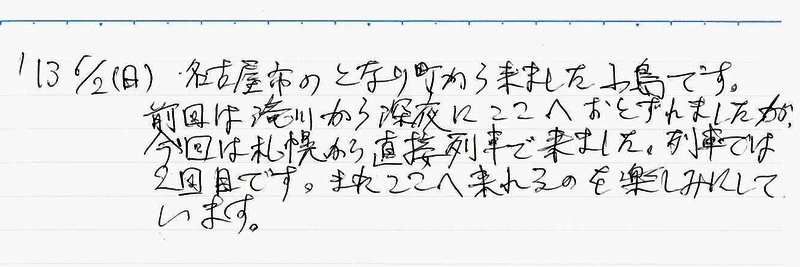 '13 6/2(日) 名古屋市のとなり町から来ました小島です。
前回は滝川から深夜にここへおとずれましたが、
今回は札幌から直接列車で来ました。列車では
2回目です。またここへ来れるのを楽しみにして
います。